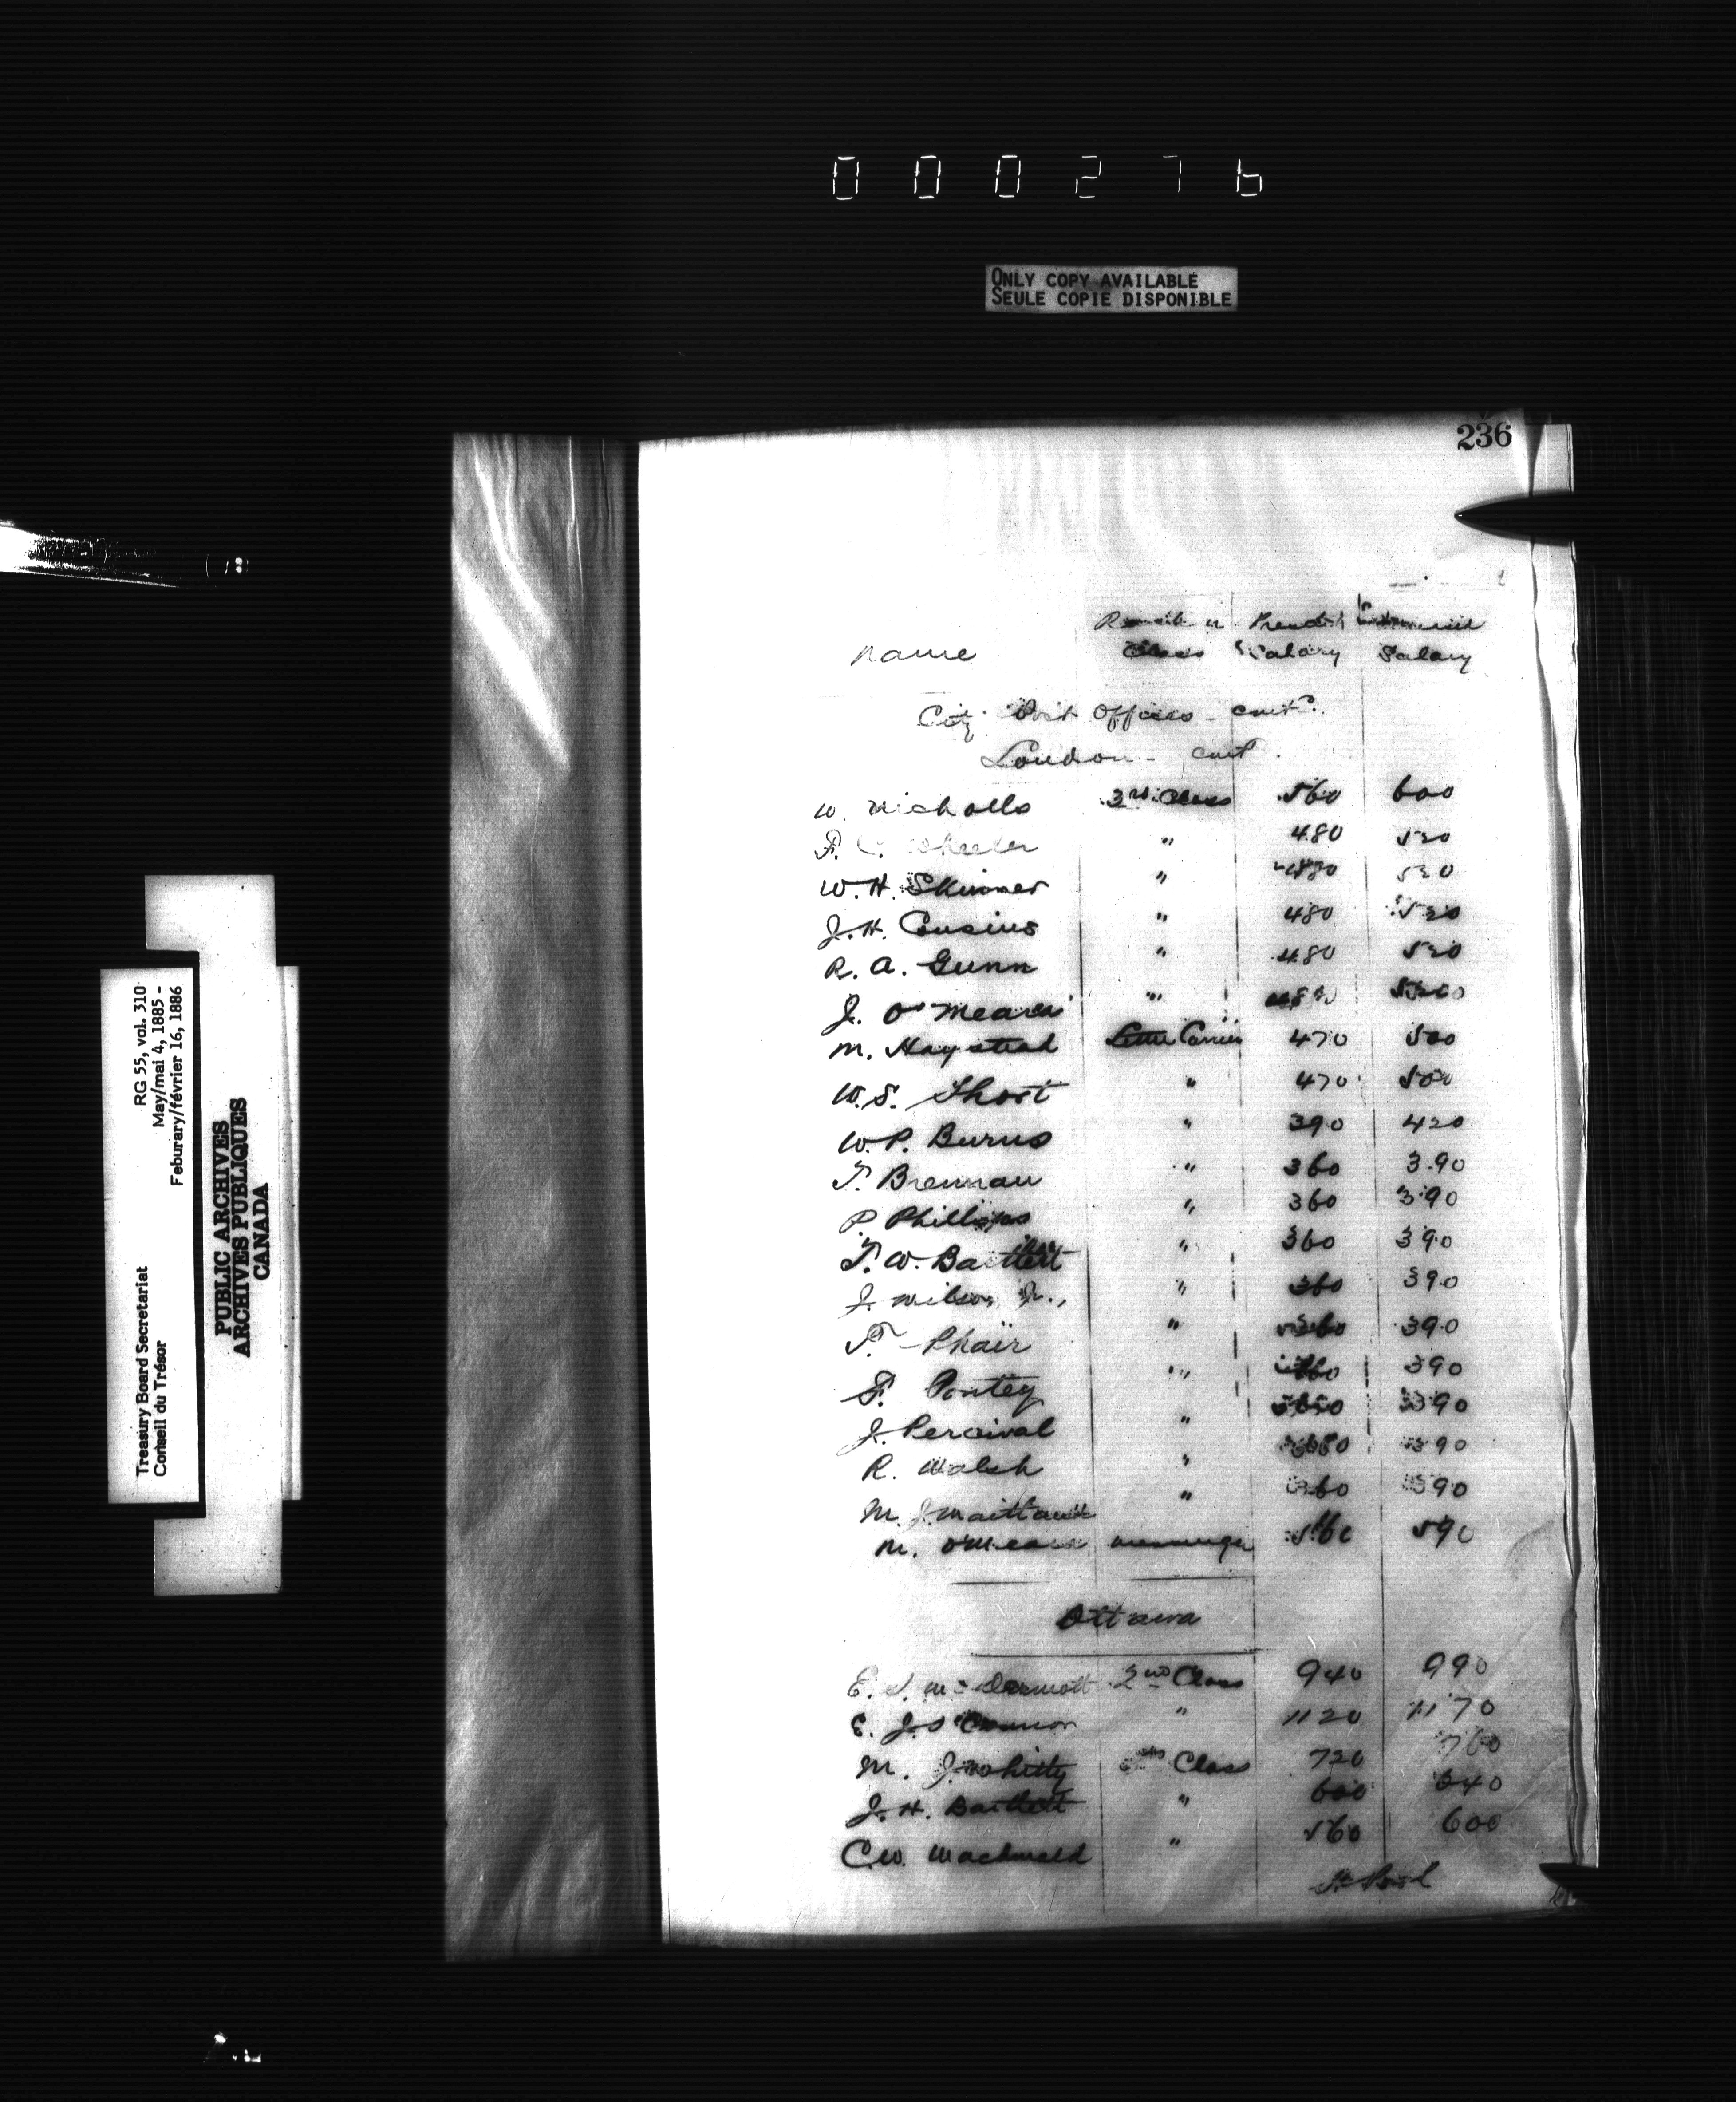 000276
ONLY COPY AVAILABLE
SEULE COPIE DISPONIBLE
236
RG 55, vol. 310
May/mai 4, 1885 -
Feburary/février 16, 1886
Treasury Board Secretariat
Conseil du Trésor
PUBLIC ARCHIVES
ARCHIVES PUBLIQUES
CANADA
Name Rank or Class Present Salary Increased Salary
City Post Offices - cont.
London - cont.
W. Nicholls 3rd Class 560 600
F. C. Wheeler " 480 520
W. H. Skinner " 480 520
J. H. Cousins " 480 520
R. A. Gunn " 480 520
J. O'Meara " 480 520
M. Haystead Letter Carrier 470 500
W. S. Short " 470 500
W. P. Burns " 390 420
T. Brennan " 360 390
P. Phillips " 360 390
T. W. " 360 390
J. Wilson Jr., " 360 390
T. Phair " 360 390
F. Pontey " 360 390
J. Percival " 360 390
R. Walsh " 360 390
M. J. " 360 390
M. O'Meara Messenger 560 590
Ottawa
E. J. McDermott 2nd Class 940 990
E. J. O'Connor " 1120 1170
M. J. Whitty Class 720 760
J. H. Bartlett " 600 640
C. W. " 560 600